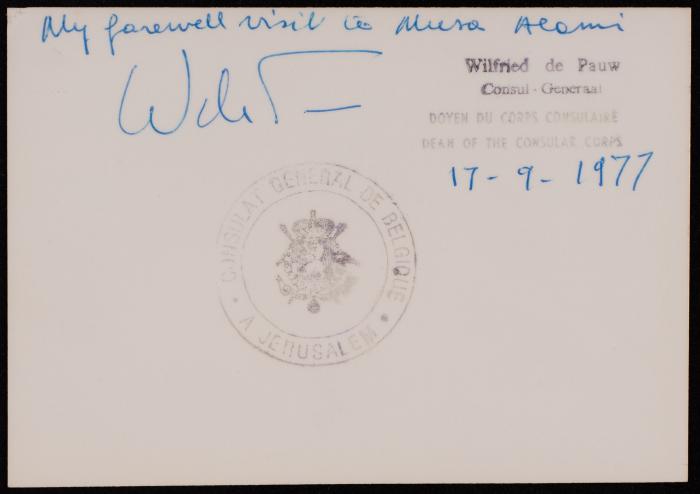 My farewell visit to Musa Alami
Wilfried de Pauw
Consul-Generaal
DOYEN DU CORPS CONSULAIRE
DEAN OF THE CONSULAR CORPS
17-9-1977
CONSULAT GENERAL DE BELGIQUE
• A JERUSALEM •